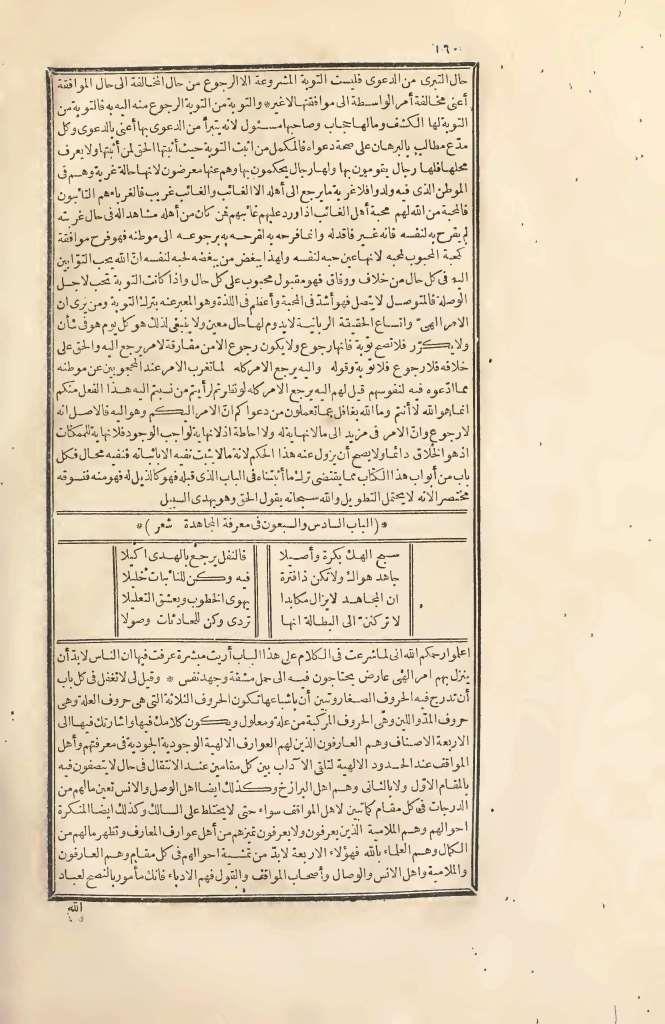 ١٦٠
حال التبرى من الدعوى فليست التوبة المشروعة الا الرجوع من حال المخالفة الى حال الموافقة
أعنى مخالفة أمر الواسطة الى موافقتها لاغير * والتوبة من التوبة الرجوع منه اليه به فالتوبة من
التوبة لها الكشف ومالها حجاب وصاحبها مسئول لانه يتبرأ من الدعوى بها أعنى بالدعوى وكل
مدّع مطالب بالبرهان على صحة دعواه فالمكمل من اثبت التوبة حيث أثبتها الحق لمن أثبتها ولا يعرف
محلها فلها رجال يقومون بها ولها رجال يحكمون بها وهم عنها معرضون لانها حالة غربة وهم فى
الموطن الذى فيه ولدوا فلا غربة ما يرجع الى أهله الا الغائب والغائب غريب فالغرباء هم التائبون
فالمحبة من الله لهم محبة أهل الغائب اذا ورد عليهم غائبهم فمن كان من أهله مشاهدا له فى حال غربته
لم يفرح به لنفسه فانه غير فاقد له وانما فرحه به لفرحه به برجوعه الى موطنه فهو فرح موافقة
كمحبة المحبوب لمحبه لانها عين حبه لنفسه ولهذا يبغض من يبغضه لحبه لنفسه انّ الله يحب التوّابين
اليه فى كل حال من خلاف ووفاق فهو مقبول محبوب على كل حال واذا كانت التوبة تحب لاجل
الوصلة فالمتوصل لا يتصل فهو أشدّ فى المحبة وأعظم فى اللذة وهو المعبر عنه بترك التوبة ومن يرى ان
الامر الهىّ واتساع الحقيقة الربانية لا يدوم لها حال معين ولا ينبغى لذلك هو كل يوم هو فى شأن
ولا يكرّر فلا تصح توبة فانها رجوع ولا يكون رجوع الا من مفارقة لامر يرجع اليه والحق على
خلافه فلا رجوع فلا توبة وقوله واليه يرجع الامر كله لما تغرب الامر عند المحجوبين عن موطنه
بما ادّعوه فيه لنفوسهم قيل لهم اليه يرجع الامر كله لو نظرتم لرأيتم من نسبتم اليه هذا الفعل منكم
انما هو الله لا أنتم وما الله بغافل عما تعملون من دعواكم انّ الامر اليكم وهو اليه فالاصل انه
لا رجوع وانّ الامر فى مزيد الى مالا نهاية له ولا احاطة اذ لا نهاية لواجب الوجود فلا نهاية للممكنات
اذ هو الخلاق دائما ولا يصح أن يزول عنه هذا الحكم لانه ما لا يثبت نفيه الا باثباته فنفيه محال فكل
باب من أبواب هذا الكتاب مما يقتضى ترك ما أثبتناه فى الباب الذى قبله فهو كالذيل له فهو منه فنسوقه
مختصرا لانه لا يحتمل التطويل والله سبحانه يقول الحق وهو يهدى السبيل
* (الباب السادس والسبعون فى معرفة المجاهدة شعر) *
سبح الهك بكرة وأصيلا فالنفل يرجع بالهدى اكليلا
جاهد هواك ولا تكن ذا فترة فيه وكن للنائبات خليلا
ان المجاهد لا يزال مكابدا يهوى الخطوب ويعشق التعليلا
لا تركننّ الى البطالة انها تردى وكن للحادثات وصولا
اعلموا رحمكم الله انى لما شرعت فى الكلام على هذا الباب أريت مبشرة عرفت فيها ان الناس لابدّ أن
ينزل بهم امر الهى عارض يحتاجون فيه الى حمل مشقة وجهد نفس * وقيل لى لا تغفل فى كل باب
أن تدرج فيه الحروف الصغار وتبين أنّ باشباعها تكون الحروف الثلاثة التى هى حروف العلة وهى
حروف المدّ واللين وهى الحروف المركبة من علة ومعلول ويكون كلامك فيها واشارتك فيها الى
الاربعة الاصناف وهم العارفون الذين لهم العوارف الالهية الوجودية الجودية فى معرفتهم وأهل
المواقف عند الحدود الالهية لتلقى الآداب بين كل مقامين عند الانتقال فى حال لا يتصفون فيه
بالمقام الاوّل ولا بالثانى وهم اهل البرازخ وكذلك ايضا اهل الوصل والانس تعين مالهم من
الدرجات فى كل مقام كما تبين لاهل المواقف سواء حتى لا يختلط على السالك وكذلك ايضا المنكرة
احوالهم وهم الملامية الذين يعرفون ولا يعرفون تميزهم من أهل عوارف المعارف وتظهر مالهم من
الكمال وهم العلماء بالله فهؤلاء الاربعة لابدّ من تمشية احوالهم فى كل مقام وهم العارفون
والملامية واهل الانس والوصال وأصحاب المواقف والقول فهم الادباء فانك مأمور بالنصح لعباد
الله